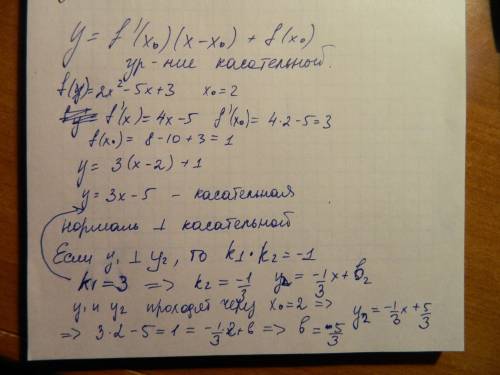 y = f'(x₀)(x-x₀) + f(x₀)
ур-ние касательной.
f(x) = 2x² - 5x + 3   x₀ = 2
f'(x) = 4x - 5   f'(x₀) = 4·2 - 5 = 3
f(x₀) = 8 - 10 + 3 = 1
y = 3(x-2) + 1
y = 3x - 5 – касательная
нормаль ⊥ касательной
Если y₁ ⊥ y₂, то k₁·k₂ = -1
k₁ = 3 => k₂ = -1/3   y₂ = -1/3 x + b₂
y₁ и y₂ проходят через x₀ = 2 =>
=> 3·2 - 5 = 1 = -1/3·2 + b => b = 5/3   y₂ = -1/3 x + 5/3